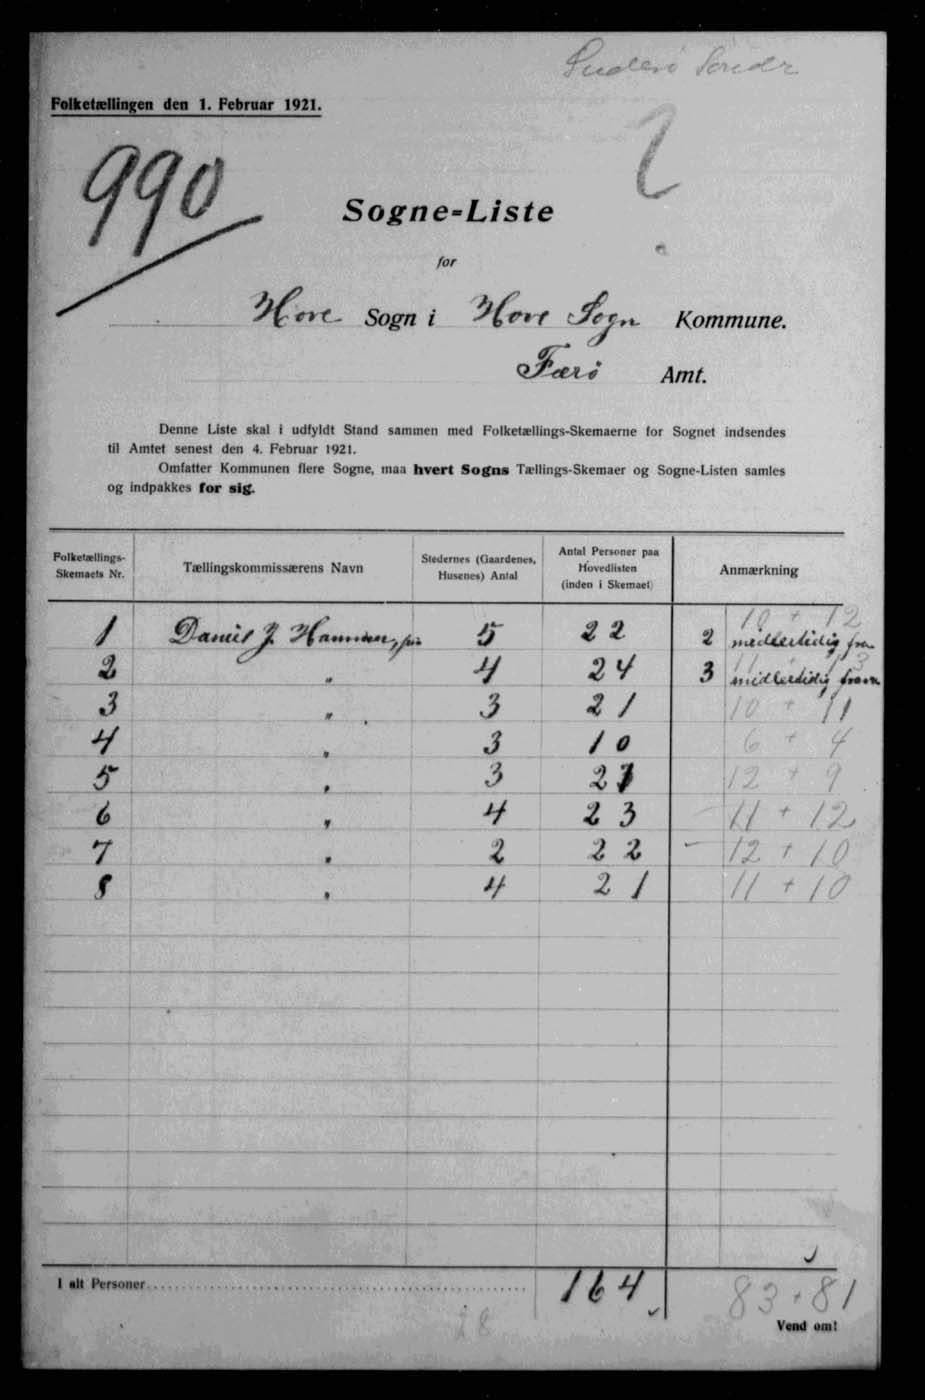 Suderø Sønder
Folketællingen den 1. Februar 1921.
990
Sogne=Liste
for
Hove Sogn i Hove Sogn Kommune.
Færø Amt.
Denne Liste skal i udfyldt Stand sammen med Folketællings-Skemaerne for Sognet indsendes
til Amtet senest den 4. Februar 1921.
Omfatter Kommunen flere Sogne, maa hvert Sogns Tællings-Skemaer og Sogne-Listen samles
og indpakkes for sig.
Folketællings-
Skemaets Nr.
Tællingskommissærens Navn
Stedernes (Gaardenes,
Husenes) Antal
Antal Personer paa
Hovedlisten
(inden i Skemaet)
Anmærkning
10 + 12
1 Daniel J. Hammer, 5 22 2 midlertidig frav
11 + 13
2 " 4 24 3 midlertidig frav
3 " 3 21 10 + 11
4 " 3 10 6 + 4
5 " 3 21 12 + 9
6 " 4 23 11 + 12
7 " 2 22 12 + 10
8 " 4 21 11 + 10
I alt Personer 164 83 + 81
28
Vend om!